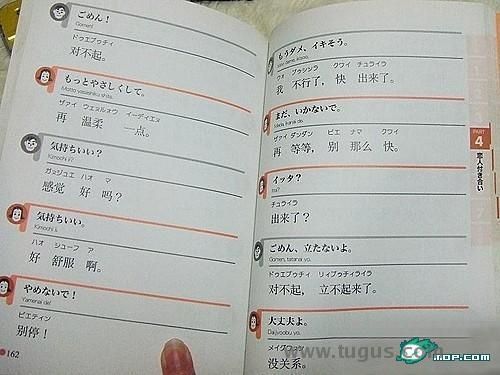 ごめん！
Gomen!
ドゥエブゥチィ
对不起。
もっとやさしくして。
Motto yasashiku shite.
ザァイ ウェヌルォウ イーディエヌ
再 温柔 一点。
気持ちいい？
Kimochi ii?
ガヌジュエ ハオ マ
感觉 好 吗？
気持ちいい。
Kimochi ii.
ハオ シューフ ア
好 舒服 啊。
やめないで！
Yamenai de!
ビエティン
别停！
162
もうダメ、イキそう。
Mou dame, ikisou.
ウオ ブゥシンラ クワイ チュライラ
我 不行了，快 出来了。
まだ、いかないで。
Mada, ikanai de.
ザァイ ダンダン ビエ ナマ クワイ
再 等等，别 那么 快。
イッタ？
Itta?
チュライラ
出来了？
ごめん、立たないよ。
Gomen, tatanai yo.
ドゥエブゥチィ リィブゥチィライラ
对不起，立不起来了。
大丈夫よ。
Daijoobu yo.
メイグワンシ
没关系。
PART
4
恋人付き合い
www.tugus.com
TOP.COM